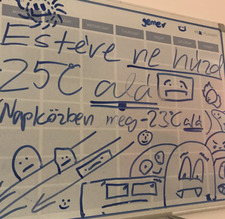 Estéve ne huzd
25C alá
Napközben meg -23C alá